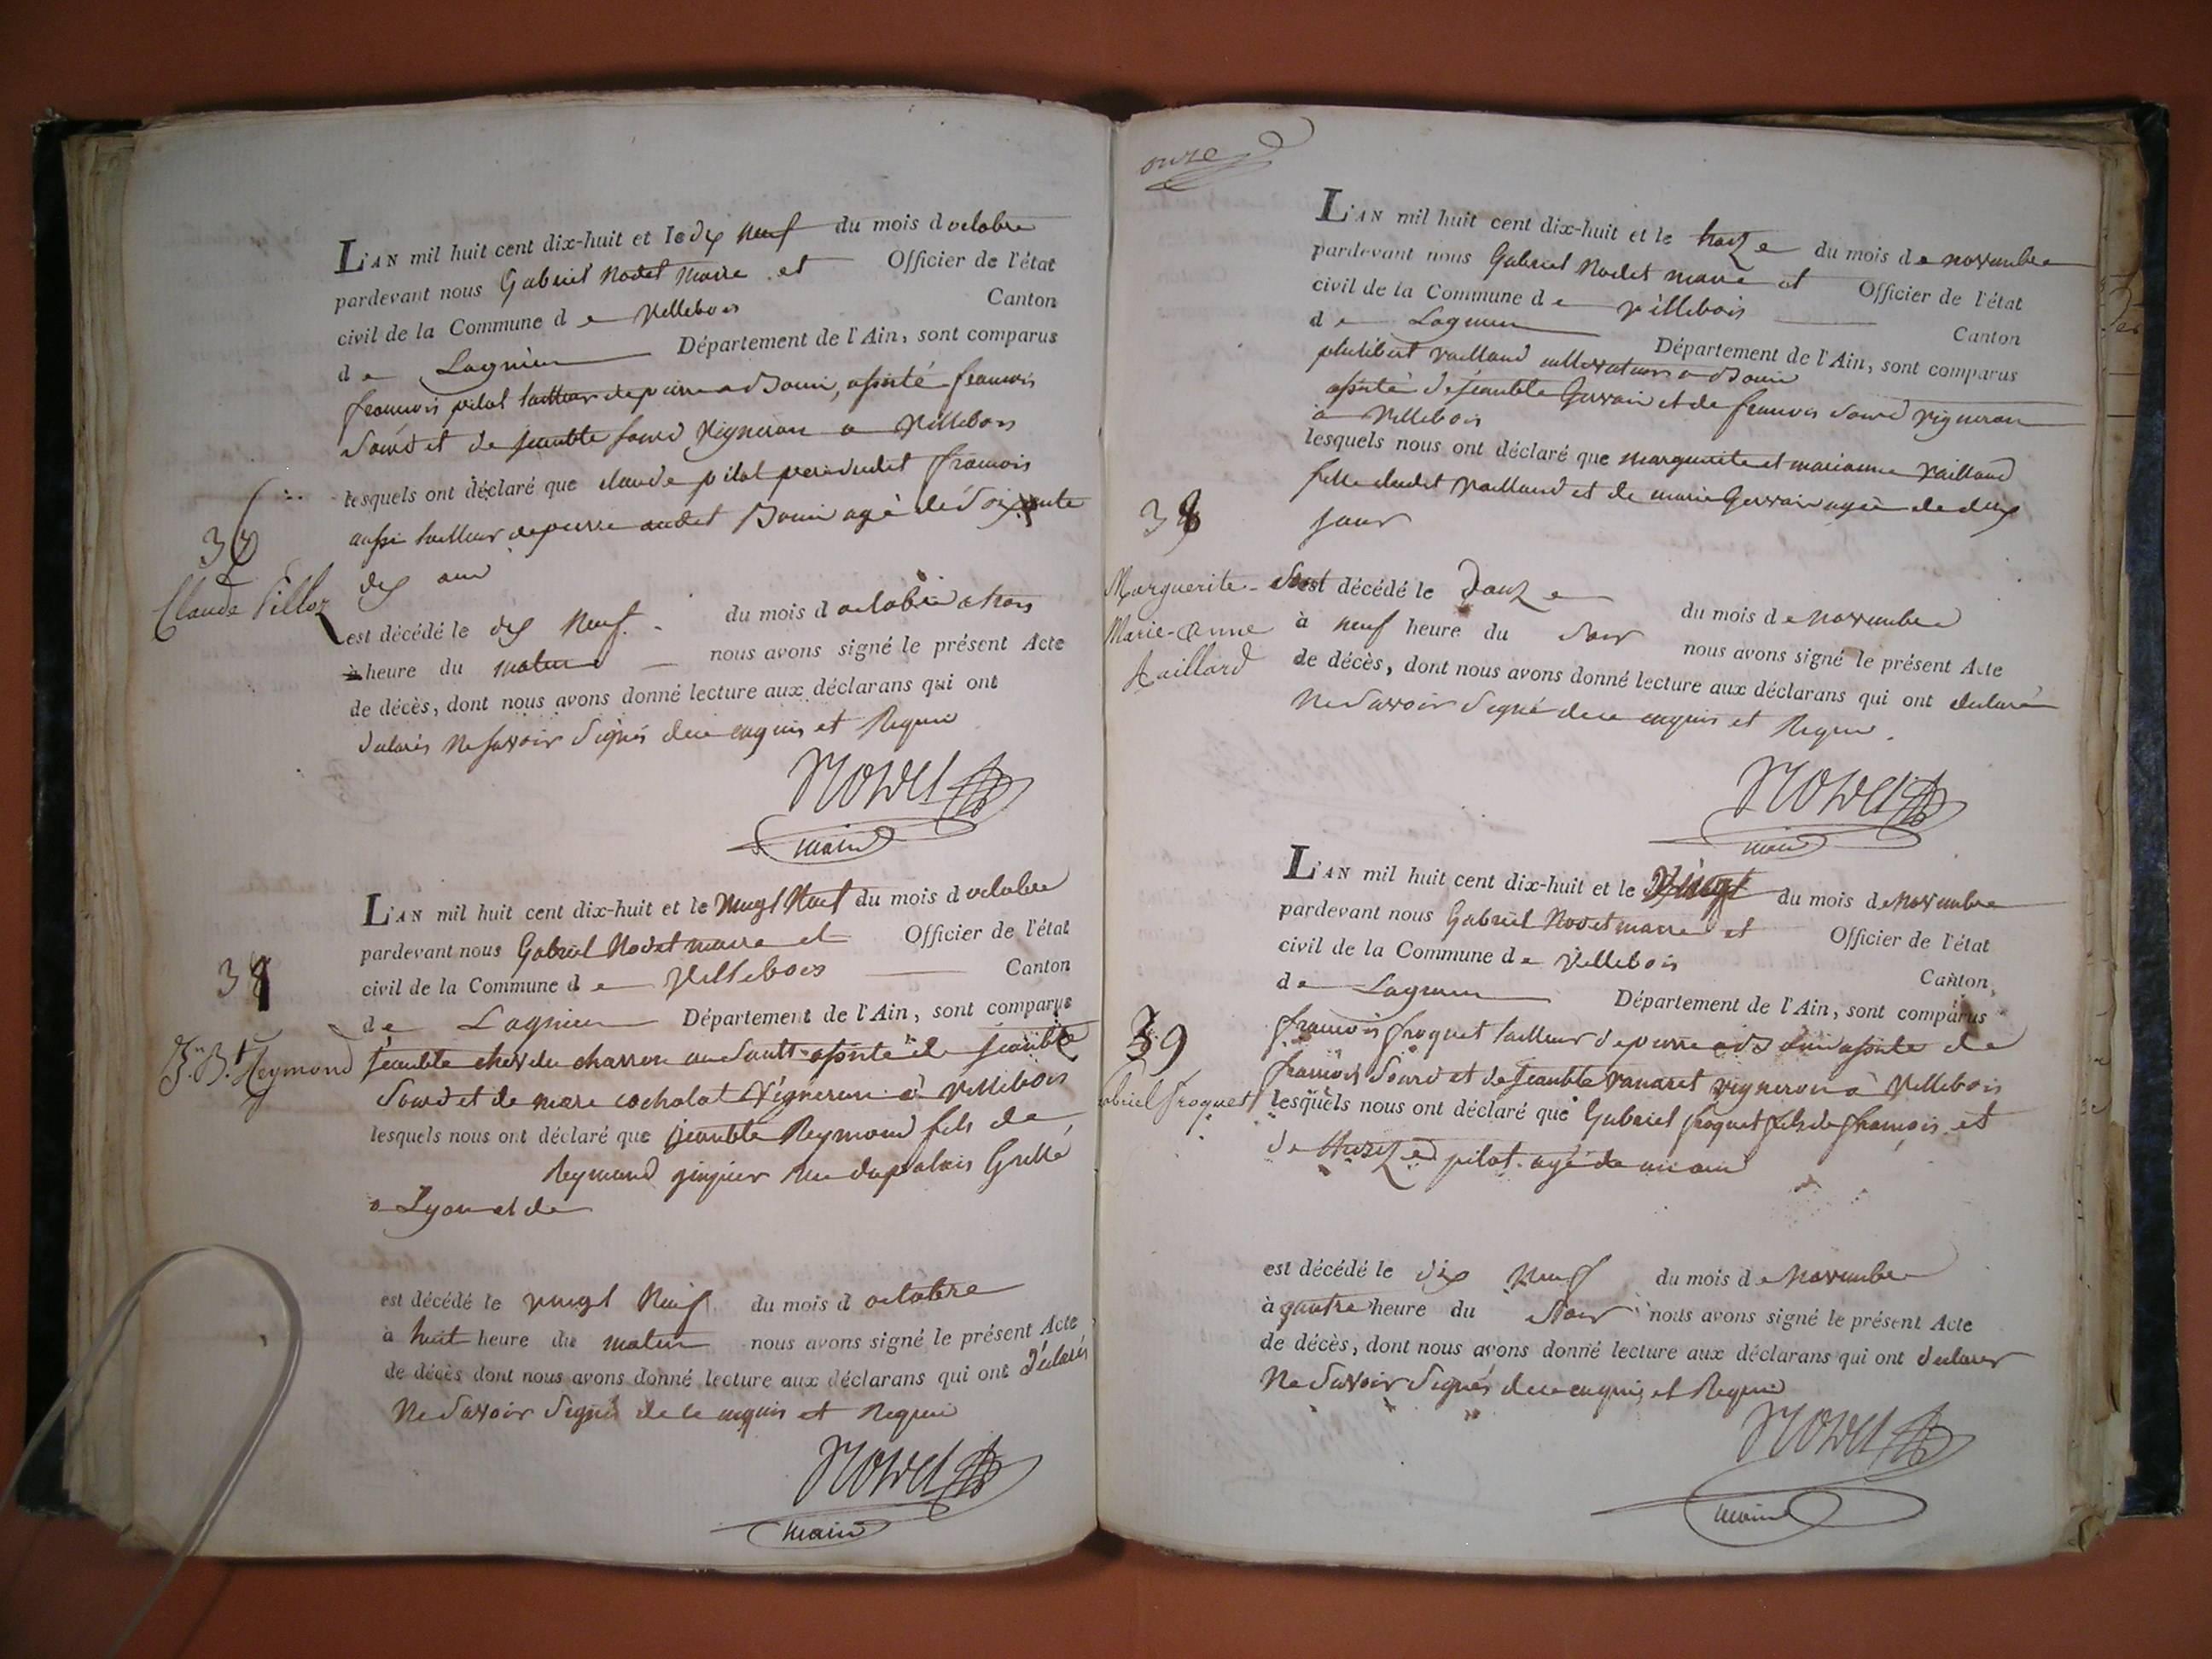 L'AN mil huit cent dix-huit et le dix neuf du mois d octobre
pardevant nous Gabriel Nodet maire et Officier de l'état
civil de la Commune d e Villebois Canton
d e Lagnieu Département de l'Ain, sont comparus
francois pilot tailleur de pierre a Bouis, assisté francois
Sourd et de jeanbte sourd Vigneron a Villebois
lesquels ont déclaré que claude pilot pere dudit francois
aussi tailleur de pierre audet Bouis agé de Soixante
dix ans
36
Claude Pilloz
est décédé le dix Neuf du mois d octobre a trois
heure du matin nous avons signé le présent Acte
de décès, dont nous avons donné lecture aux déclarans qui ont
declarés Ne savoir Signés de ce enquis et Requis
NODET
maire
L'AN mil huit cent dix-huit et le vingt Neuf du mois d octobre
pardevant nous Gabriel Nodet maire et Officier de l'état
civil de la Commune d e Villebois Canton
d e Lagnieu Département de l'Ain, sont comparus
37
Jn. Bt. Reymond
jeanbte charron au Sault assisté de jeanbte
Sourd et de marc cochalat Vigneron a Villebois
lesquels nous ont déclaré que jeanbte Reymond fils de
Reymond rue du palais Grillé
a Lyon et de
est décédé le vingt Neuf du mois d octobre
à huit heure du matin nous avons signé le présent Acte
de décès dont nous avons donné lecture aux déclarans qui ont déclarés
Ne Savoir Signés de ce enquis et Requis
NODET
maire
onze
L'AN mil huit cent dix-huit et le treize du mois d e novembre
pardevant nous Gabriel Nodet maire et Officier de l'état
civil de la Commune d e Villebois Canton
d e Lagnieu Département de l'Ain, sont comparus
philibert vailland cultivateur a Bouis
assisté de jeanbte Gervais et de francois Sourd vigneron
a Villebois
lesquels nous ont déclaré que marguerite et marianne Vailland
fille dudit Vailland et de marie Gervais agée de dix
jour
38
Marguerite-
Marie-Anne
Vaillard
Sont est décédé le Douze du mois d e novembre
à neuf heure du Soir nous avons signé le présent Acte
de décès, dont nous avons donné lecture aux déclarans qui ont declaré
Ne Savoir Signé de ce enquis et Requis.
NODET
maire
L'AN mil huit cent dix-huit et le Vingt du mois d e novembre
pardevant nous Gabriel Nodet maire et Officier de l'état
civil de la Commune d e Villebois Canton
d e Lagnieu Département de l'Ain, sont comparus
39
francois froquet tailleur de pierre a Bouis assisté de
francois Sourd et de jeanbte vanaret vigneron a Villebois
abriel froquet
lesquels nous ont déclaré que Gabriel froquet fils de francois et
de pilot agé de un ans
est décédé le dix Neuf du mois d e novembre
à quatre heure du Soir nous avons signé le présent Acte
de décès, dont nous avons donné lecture aux déclarans qui ont declarer
Ne Savoir Signés de ce enquis et Requis
NODET
maire